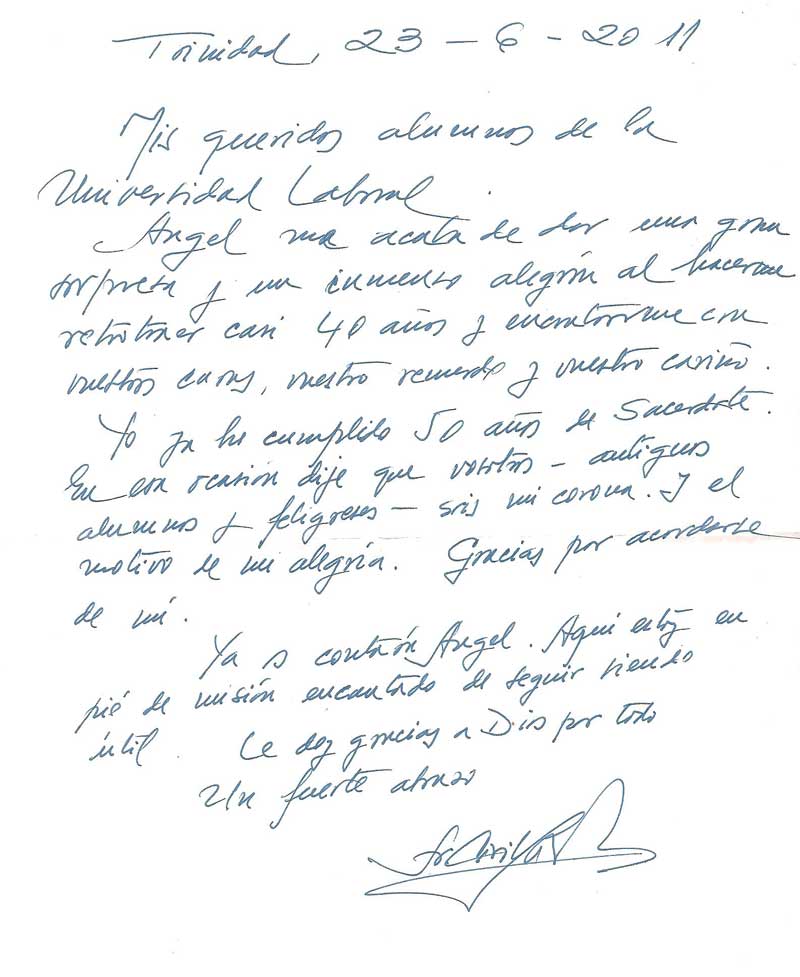 Trinidad, 23 - 6 - 2011
Mis queridos alumnos de la
Universidad Laboral.
Angel me acaba de dar una gran
sorpresa y un inmenso alegría al hacerme
retrotraer casi 40 años y encontrarme con
vuestras caras, vuestro recuerdo y vuestro cariño.
Yo ya he cumplido 50 años de Sacerdote.
En esa ocasión dije que vosotros - antiguos
alumnos y feligreses - sois mi corona. Y el
motivo de mi alegría. Gracias por acordarse
de mí.
Ya os contará Angel. Aqui estoy en
pié de misión encantado de seguir siendo
útil. Le doy gracias a Dios por todo
Un fuerte abrazo